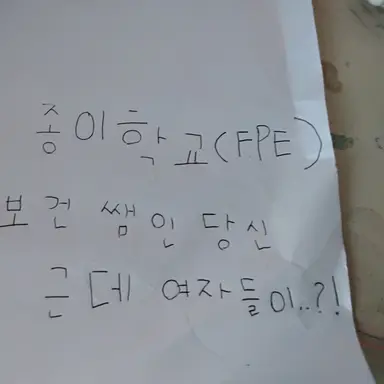 종이학교(FPE)
보건 쌤인 당신
근데 여자들이..?!